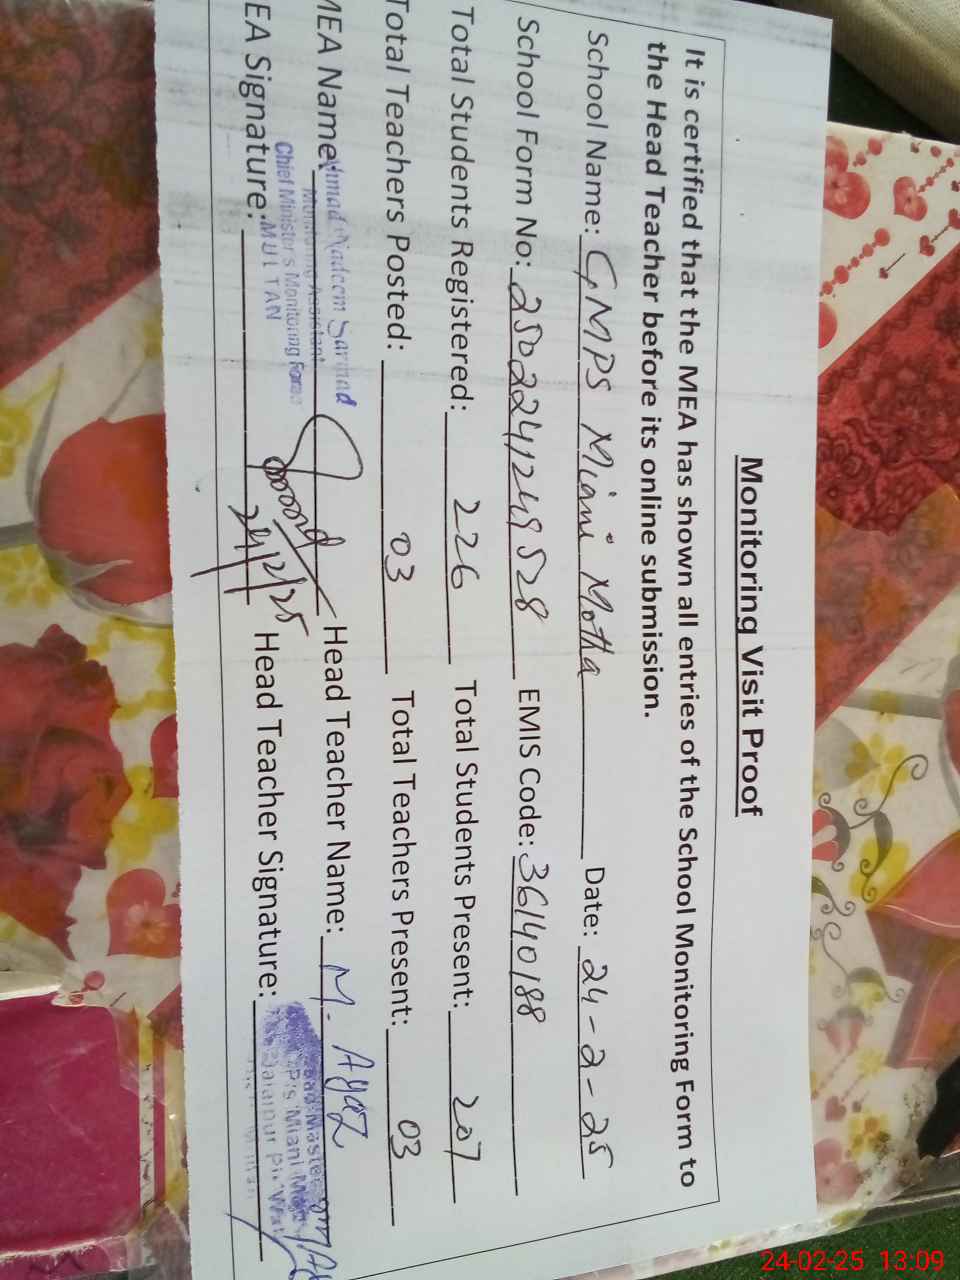 Monitoring Visit Proof
It is certified that the MEA has shown all entries of the School Monitoring Form to
the Head Teacher before its online submission.
School Name: GMPS Miani Motha Date: 24-2-25
School Form No: EMIS Code: 36140188
Total Students Registered: 226 Total Students Present: 207
Total Teachers Posted: 03 Total Teachers Present: 03
MEA Name: Head Teacher Name: M. Ayaz
Nadeem Sarmad
Monitoring Assistant
Chief Minister's Monitoring Force
MULTAN
EA Signature: Head Teacher Signature:
24/2/25
Miani
24-02-25 13:09